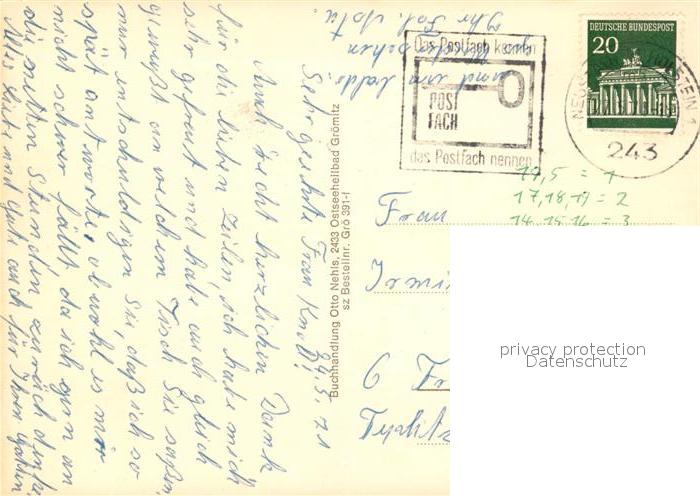 24.3.71
Sehr geehrte Frau Knoll!
Auch recht herzlichen Dank
für die lieben Zeilen, ich habe mich
sehr gefreut und habe auch gleich
gewußt an welchem Tisch Sie saßen,
nur entschuldigen Sie, daß ich so
spät antworte, obwohl es mir
nicht schwer fällt, da ich gern an
die netten Stunden zurück denke.
Alles Liebe und Gut auch für Ihren Gatten
und
Ihr
Buchhandlung Otto Nehls, 2433 Ostseeheilbad Grömitz
sz Bestellnr. Grö 391-f
Das Postfach kennen
POST
FACH
das Postfach nennen
DEUTSCHE BUNDESPOST
20
243
19,5 = 1
17,18,19 = 2
14,15,16 = 3
Frau
6 Fr
privacy protection
Datenschutz